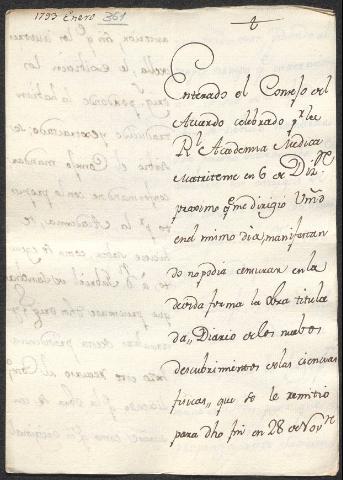 1793 Enero 361
Enterado el Consejo del
Acuerdo celebrado pr. la
Rl. Academia Medica
Matritense en 6 de Dizre.
proximo qe. me dirigió Vmd
en el mismo dia, manifestan
do no podia censurar en la
devida forma la Obra titula
da,, Diario de los nuebos
descubrimientos de las ciencias
fisicas,, que se le remitio
para dho fin en 28 de Novre